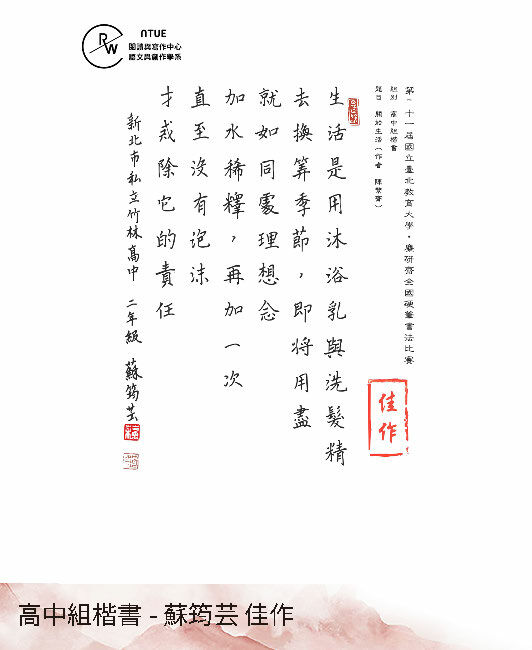 NTUE
閱讀與寫作中心
語文與創作學系
RW
第二十一屆國立臺北教育大學・廉研齋全國硬筆書法比賽
組別 高中組楷書
題目 關於生活(作者 陳繁齊)
生活是用沐浴乳與洗髮精
去換算季節,即將用盡
就如同處理想念
加水稀釋,再加一次
直至沒有泡沫
才戒除它的責任
新北市私立竹林高中 二年級 蘇筠芸
佳作
高中組楷書 - 蘇筠芸 佳作